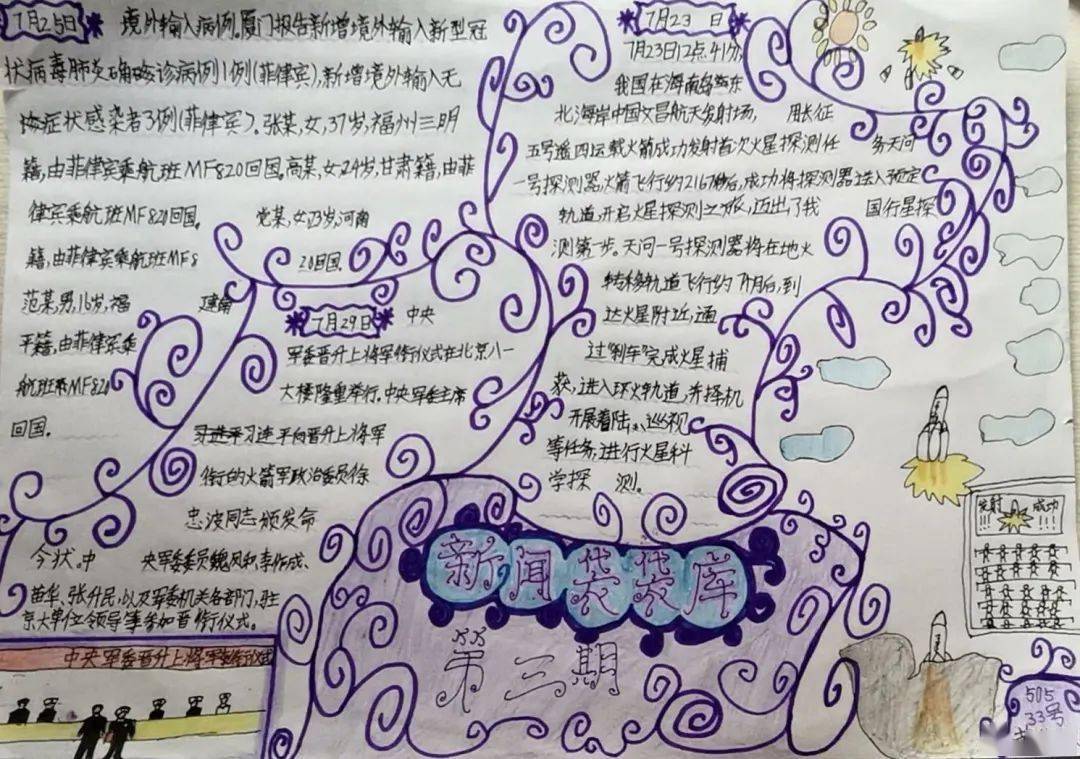 7月25日
境外输入病例。厦门报告新增境外输入新型冠
状病毒肺炎确诊病例1例(菲律宾),新增境外输入无
症状感染者3例(菲律宾)。张某,女,37岁,福州三明
籍,由菲律宾乘航班MF820回国。高某,女24岁,甘肃籍,由菲
律宾乘航班MF820回国。 党某,女23岁,河南
籍,由菲律宾乘航班MF8 20回国。
范某,男,16岁,福 建南
平籍,由菲律宾乘
航班MF820
回国。
7月29日
中央
军委晋升上将军衔仪式在北京八一
大楼隆重举行。中央军委主席
习近平向晋升上将军
衔的火箭军政治委员徐
忠波同志颁发命
令状。中 央军委委员魏凤和、李作成、
苗华、张升民,以及军委机关各部门、驻
京大单位领导等参加晋衔仪式。
中央军委晋升上将军衔仪式
7月23 日
7月23日12点41分,
我国在海南岛东
北海岸中国文昌航天发射场, 用长征
五号遥四运载火箭成功发射首次火星探测任 务天问
一号探测器,火箭飞行约2167秒后,成功将探测器送入预定
轨道,开启火星探测之旅,迈出了我 国行星探
测第一步。天问一号探测器将在地火
转移轨道飞行约7个月后,到
达火星附近,通
过“刹车”完成火星捕
获,进入环火轨道,并择机
开展着陆、巡视
等任务,进行火星科
学探 测。
发射 成功
!!! !!!!
新闻袋袋库
第三期
505
33号